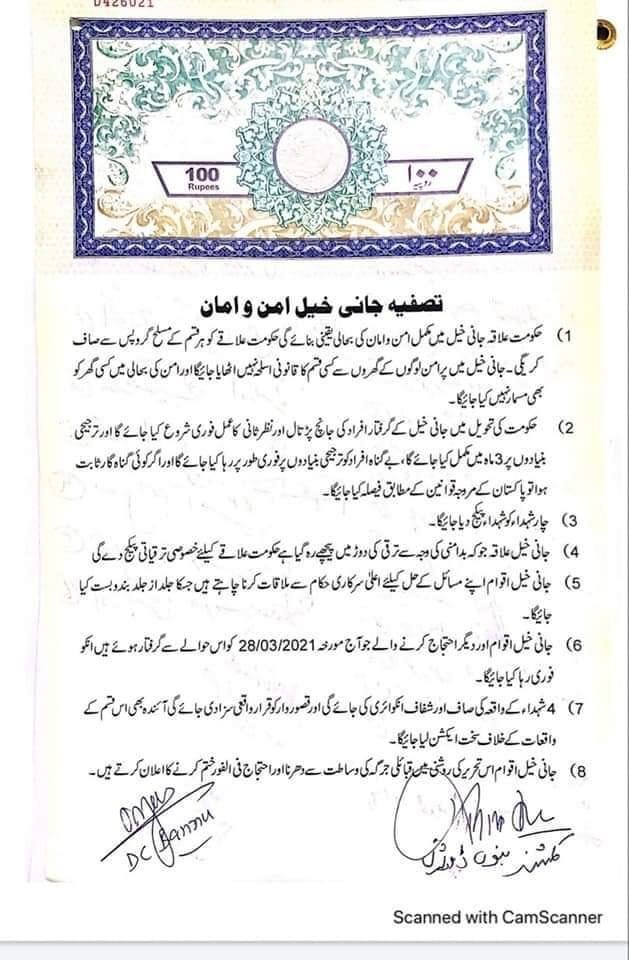 D426021
100
Rupees
۱۰۰
روپیہ
تصفیہ جانی خیل امن و امان
1) حکومت علاقہ جانی خیل میں مکمل امن و امان کی بحالی یقینی بنائے گی حکومت علاقے کو ہر قسم کے مسلح گروپس سے صاف
کریگی۔ جانی خیل میں پرامن لوگوں کے گھروں سے کسی قسم کا قانونی اسلحہ نہیں اٹھایا جائیگا اور امن کی بحالی میں کسی گھر کو
بھی مسمار نہیں کیا جائیگا۔
2) حکومت کی تحویل میں جانی خیل کے گرفتار افراد کی جانچ پڑتال اور نظر ثانی کا عمل فوری شروع کیا جائے گا اور ترجیحی
بنیادوں پر 3 ماہ میں مکمل کیا جائے گا، بے گناہ افراد کو ترجیحی بنیادوں پر فوری طور پر رہا کیا جائے گا اور اگر کوئی گناہ گار ثابت
ہوا تو پاکستان کے مروجہ قوانین کے مطابق فیصلہ کیا جائیگا۔
3) چار شہداء کو شہداء پیکج دیا جائیگا۔
4) جانی خیل علاقہ جو کہ بدامنی کی وجہ سے ترقی کی دوڑ میں پیچھے رہ گیا ہے حکومت علاقے کیلئے خصوصی ترقیاتی پیکج دے گی
5) جانی خیل اقوام اپنے مسائل کے حل کیلئے اعلیٰ سرکاری حکام سے ملاقات کرنا چاہتے ہیں جسکا جلد از جلد بندوبست کیا
جائیگا۔
6) جانی خیل اقوام اور دیگر احتجاج کرنے والے جو آج مورخہ 28/03/2021 کو اس حوالے سے گرفتار ہوئے ہیں انکو
فوری رہا کیا جائیگا۔
7) 4 شہداء کے واقعہ کی صاف اور شفاف انکوائری کی جائے گی اور قصوروار کو قرار واقعی سزا دی جائے گی آئندہ بھی اس قسم کے
واقعات کے خلاف سخت ایکشن لیا جائیگا۔
8) جانی خیل اقوام اس تحریر کی روشنی میں قبائلی جرگہ کی وساطت سے دھرنا اور احتجاج فی الفور ختم کرنے کا اعلان کرتے ہیں۔
DC Bannu
کمشنر بنوں ڈویژن
Scanned with CamScanner